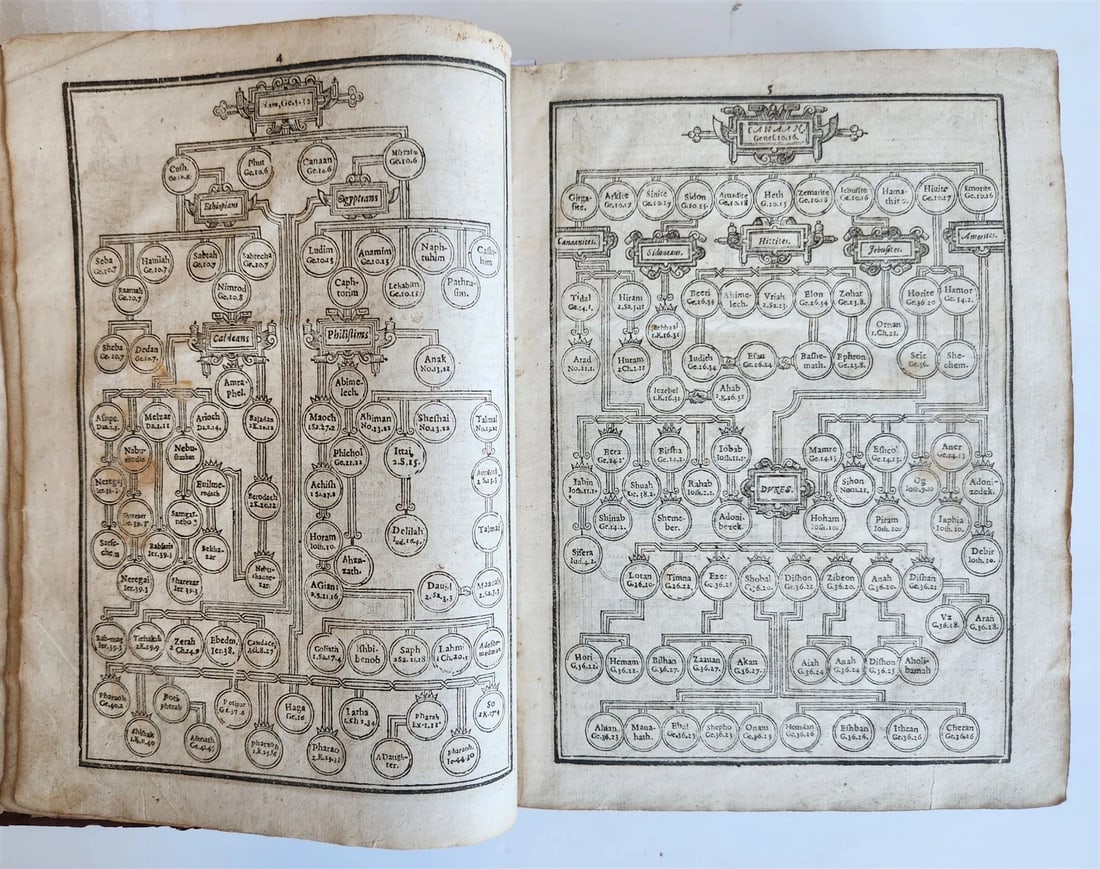 4
Cush.
Ge.10.8
Phut
Ge.10.6
Canaan
Ge.10.6
Ge.10.6
Ethiopians
Egyptians
Seba
Ge.10.7
Havilah
Ge.10.7
Sabtah
Ge.10.7
Sabtecha
Ge.10.7
Ludim
Ge.10.13
Anamim
Ge.10.13
Naph-
tuhim
Casluh
him
Raamah
Ge.10.7
Nimrod
Ge.10.8
Caph-
torim
Lehabim
Ge.10.13
Pathru-
sim.
Sheba
Ge.10.7
Dedan
Ge.10.7
Caldeans
Philistims
Anak
No.13.22
Amra-
phel.
Abime-
lech.
Melzar
Da.1.11
Arioch
Da.2.14.
Baladan
2K.20.12
Maoch
1Sa.27.2
Ahiman
No.13.22
Sheshai
No.13.22
Talmai
No.13.22
Nebu-
Phichol
Ge.21.22
Ittai,
2.S.15.
Neregal
Ier.39.3
Euilme-
rodach
Berodach
2K.20.12
Achish
1Sa.27.2
Samgar-
nebo
Delilah
Iud.16.4.
Talmai
Rabsaris
Ier.39.3
Horam
Ioth.10
Ahuz-
zath.
Neregal
Ier.39.3
Sharezar
Ier.39.3
Nebu-
chadnez-
zar
AGiant
2.S.21.16
Dauid
2.Sa.3.3
Maacah
2.Sa.3.3
Rab-mag
Ier.39.3
Tirhakah
2K.19.9
Zerah
2Ch.14.9
Ebedm,
Ier.38.
Candace
Act.8.27
Goliath
1.Sa.17.4
Ishbi-
benob
Saph
2Sa.21.18
Lahmi
1Ch.20.5
Pharaoh
Ge.40.2
Poti-
pherah
Potipar
Ge.37.36
Haga
Ge.16
Iarha
1.Ch.2.34
Pharah
Ex.1.11
So
2K.17.4
Shishak
1.K.11.40
Asnath
Ge.41.45
Pharaoh
Pharao
2.K.23.33
A Daugh-
ter.
pharaoh
Ie.44.30
5
CANAAN
Genes.10.16.
Girga-
site.
Arkite
Ge.10.17
Sinite
Ge.10.17
Sidon
G.10.15.
Aruadite
Ge.10.18
Heth
G.10.15
Zemarite
Ge.10.18
Iebusite
Ge.10.16
Hama-
thite
Hiuite
Ge.10.17
Emorite
Ge.10.16
Canaanites.
Sidoneans.
Hittites.
Jebusites.
Amorites.
Tidal
Ge.14.1.
Hiram
2.Sa.5.11
Beeri
Ge.26.34
Ahime-
lech.
Vriah
2.Sa.23.
Elon
Ge.26.34
Zohar
Ge.23.8.
Horite
Ge.36.20
Hamor
Ge.34.2.
Ethbaal
1.K.16.31
Ornan
1.Ch.21.
Arad
No.21.1.
Huram
2.Ch.2.11
Iudith
Ge.26.34
Esau
Ge.26.34
Bashe-
math.
Ephron
Ge.23.8.
Seir
Ge.36.
She-
chem.
Iezebel
1.K.16.31
Ahab
1.K.16.31
Bera
Ge.14.2
Birsha
Ge.14.2.
Iobab
Iosh.11.1.
Mamre
Ge.14.13
Eshcol
Ge.14.13.
Aner
Ge.14.13
Iabin
Iosh.11.1.
Shuah
Ge.38.2.
Rahab
Iosh.2.1.
DVKES.
Sihon
Num.21.
Og
Iosh.9.10
Adoni-
zedek.
Shinab
Ge.14.2.
Sheme-
ber.
Adoni
bezek
Hoham
Iosh.10.
Piram
Iosh.10.
Iaphia
Iosh.10.
Sisera
Iud.4.2.
Debir
Iosh.10.
Lotan
G.36.20.
Timna
G.36.22.
Ezer
G.36.21
Shobal
G.36.20.
Dishon
G.36.21
Zibeon
G.36.20.
Anah
G.36.20.
Dishan
G.36.21
Vz
G.36.28.
Aran
G.36.28.
Hori
G.36.22.
Hemam
G.36.22.
Bilhan
G.36.27.
Zaauan
G.36.27.
Akan
G.36.27.
Aiah
G.36.24
Anah
G.36.24
Dishon
G.36.25
Aholi-
bamah
Aluan
Ge.36.23
Mana-
hath.
Ebal
Ge.36.23
Shepho
Ge.36.23
Onam
Ge.36.23
Hemdan
Ge.36.26
Eshban
G.36.26.
Ithran
Ge.36.26
Cheran
Ge.36.26